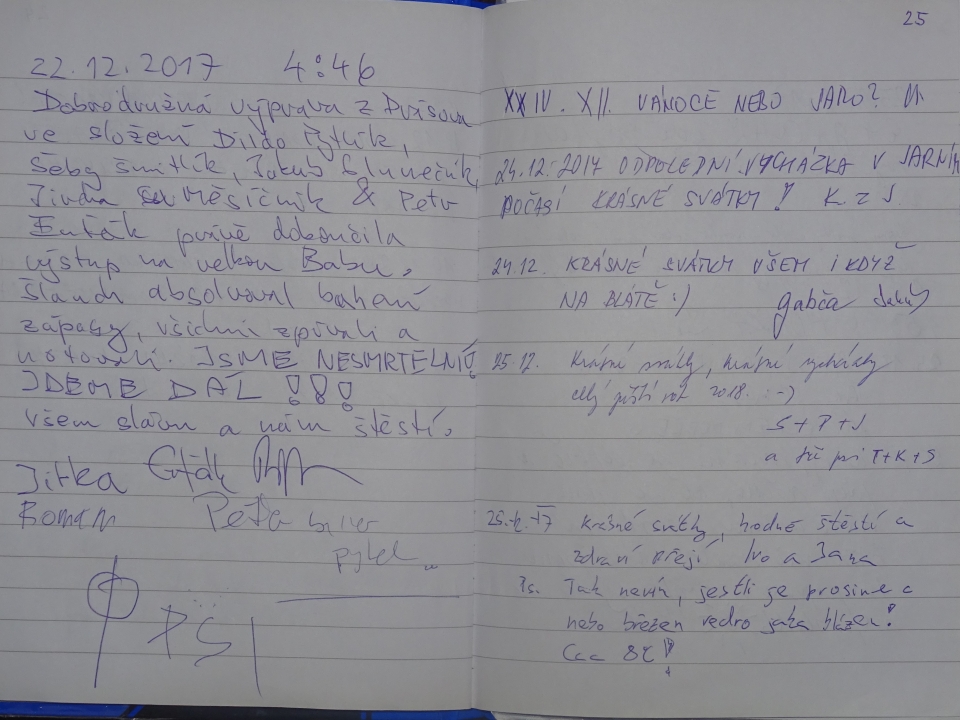 22.12.2017 4:46
Dobrodružná výprava z
ve složení Dildo Pytlík,
Šéby Šmitlík, Jakub Slunečník,
Jindra Měsíčník & Petr
Euťák právě dokončila
výstup na velkou Babu.
Šlauch absolvoval bahení
zápasy, všichni zpívali a
notovali. JSME NESMRTELNÍ!
JDEME DÁL !!!
všem slávu a nám štěstí.
Jitka
Roman Peťa
pytel...
PSI
25
XXIV. XII. VÁNOCE NEBO JARO?
24.12.2017 ODPOLEDNÍ VYCHÁZKA V JARNÍM
POČASÍ KRÁSNÉ SVÁTKY! K z J.
24.12. KRÁSNÉ SVÁTKY VŠEM I KDYŽ
NA BLÁTĚ :) Gabča
25.12. Krásné svátky, krásné vycházky
celý příští rok 2018. :-)
S+P+J
a též psi T+K+S
25.12.17 Krásné svátky, hodně štěstí a
zdraví přejí Ivo a Jana
Ps. Tak nevím, jestli je prosinec
nebo březen vedro jako blázen!
Ccc 8°C!